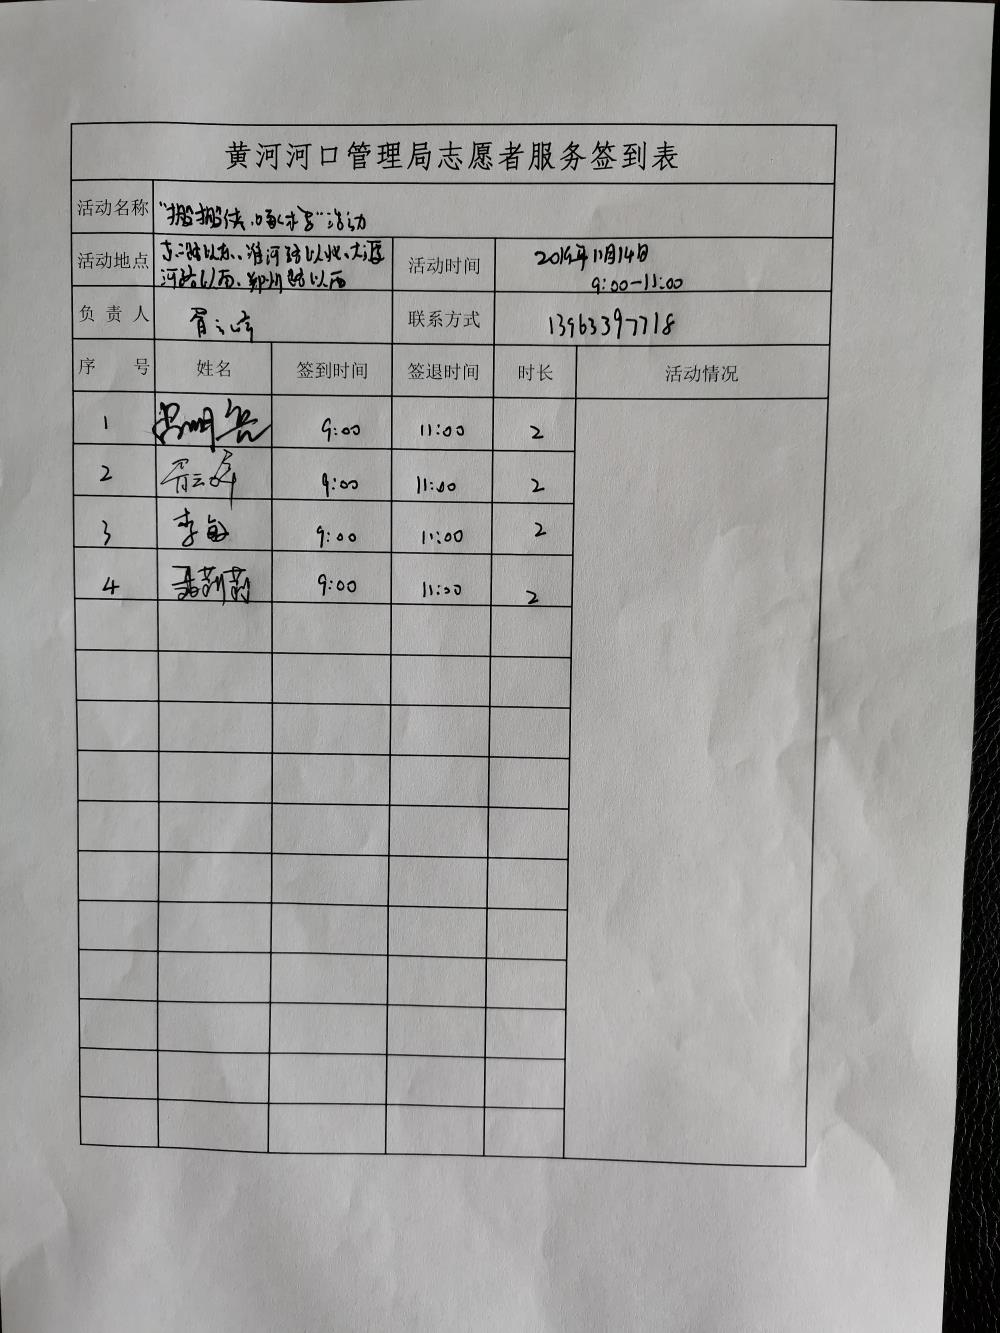 黄河河口管理局志愿者服务签到表
活动名称 "搬搬侠、啄木鸟"活动
活动地点 东二路以东、淮河路以北、
河路以西、郑州路以西
活动时间 11月14日
9:00—11:00
负责人 胥云 联系方式 13963397718
序号 姓名 签到时间 签退时间 时长 活动情况
1 9:00 11:00 2
2 胥云 9:00 11:00 2
3 李敏 9:00 11:00 2
4 聂莉莉 9:00 11:00 2